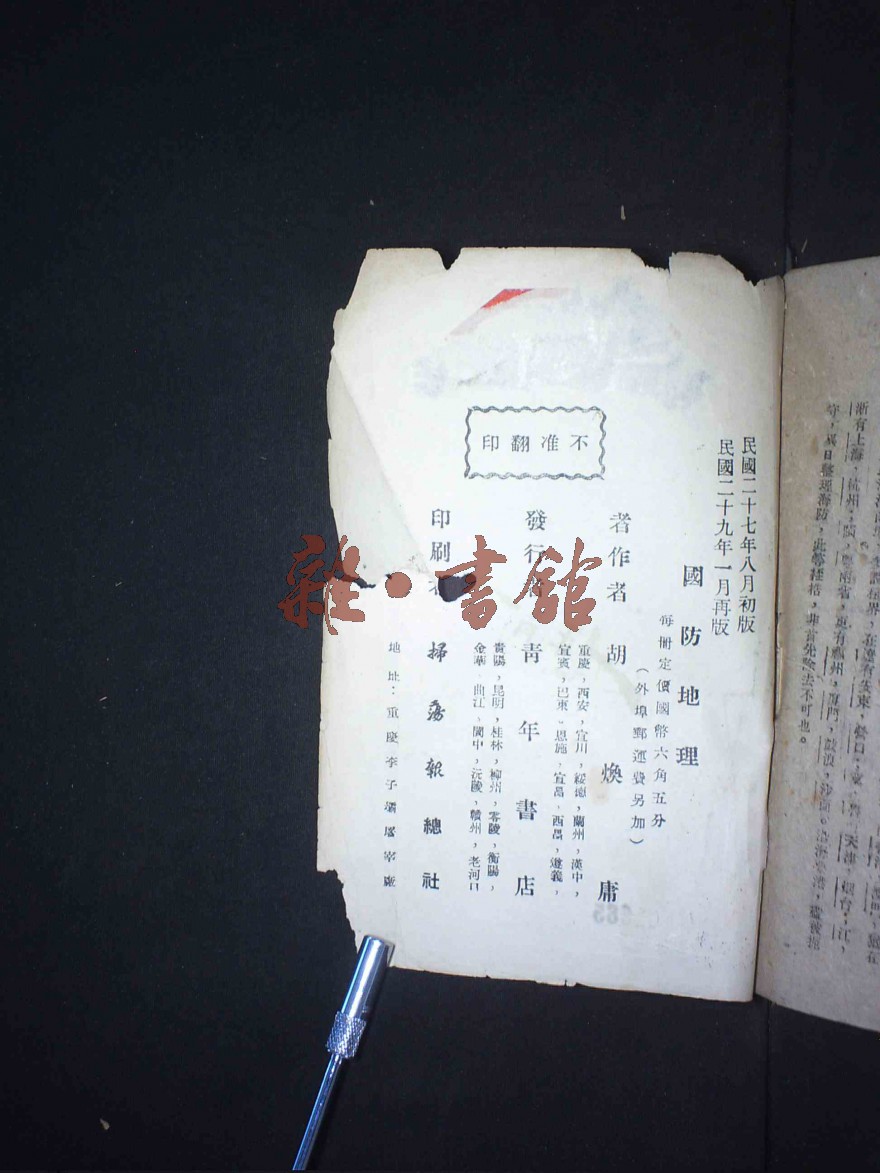 民國二十七年八月初版
民國二十九年一月再版
國防地理
每冊定價國幣六角五分
（外埠郵運費另加）
著作者 胡煥庸
重慶，西安，宜川，綏德，蘭州，漢中，
宜賓，巴東，恩施，宜昌，西昌，遵義，
發行者 青年書店
貴陽，昆明，桂林，柳州，零陵，衡陽，
金華，曲江，閬中，沅陵，贛州，老河口
印刷者 掃蕩報總社
地址：重慶李子壩
不准翻印
雜·書館
浙有上海，杭州，閩，粵兩省，更有福州，廈門，鼓浪，
守，異日整理海防，此等桎梏，非首先除去不可也。